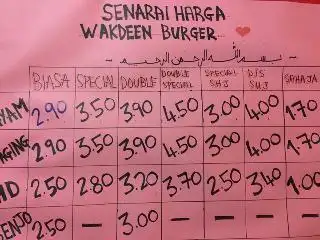 SENARAI HARGA
WAKDEEN BURGER
بسم الله الرحمن الرحيم
BIASA SPECIAL DOUBLE DOUBLE SPECIAL SPECIAL SHJ D/S SHJ SAHAJA
YAM 2.90 3.50 3.90 4.50 3.00 4.00 1.70
AGING 2.90 3.50 3.90 4.50 3.00 4.00 1.70
2.50 2.80 3.20 3.70 2.50 3.40 1.00
BENJO 2.50 — 3.00 — — — —